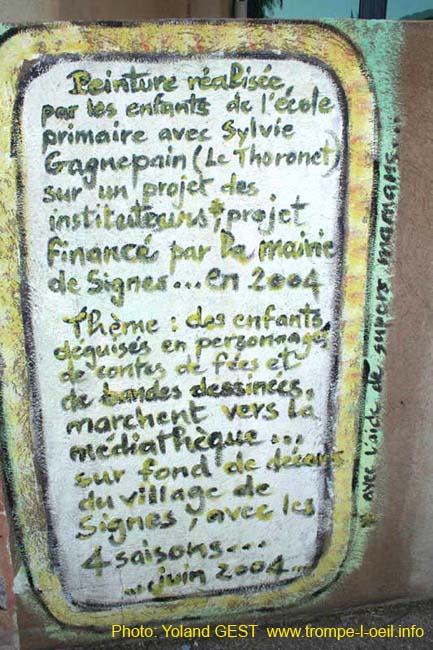 Peinture réalisée
par les enfants de l'école
primaire avec Sylvie
Gagnepain (Le Thoronet)
sur un projet des
instituteurs*, projet
financé par la mairie
de Signes... en 2004
Thème : des enfants
déguisés en personnages
de contes de fées et
de bandes dessinées,
marchent vers la
médiathèque...
sur fond de décors
du village de
Signes, avec les
4 saisons...
...juin 2004...
* avec l'aide de supers mamans...
Photo: Yoland GEST www.trompe-l-oeil.info